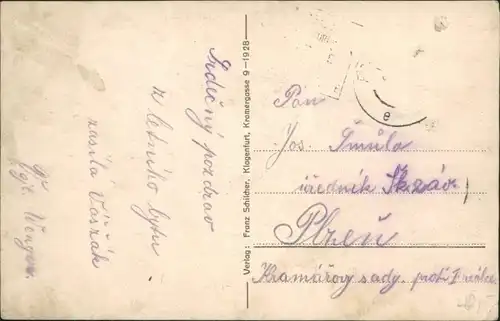 Srdečný pozdrav
z letního bytu
zasílá Vóžak
Verlag: Franz Schilcher, Klagenfurt, Kramergasse 9 – 1928
Pan
Jos. Šmula
úředník
Plzeň
Kramářovy sady, proti